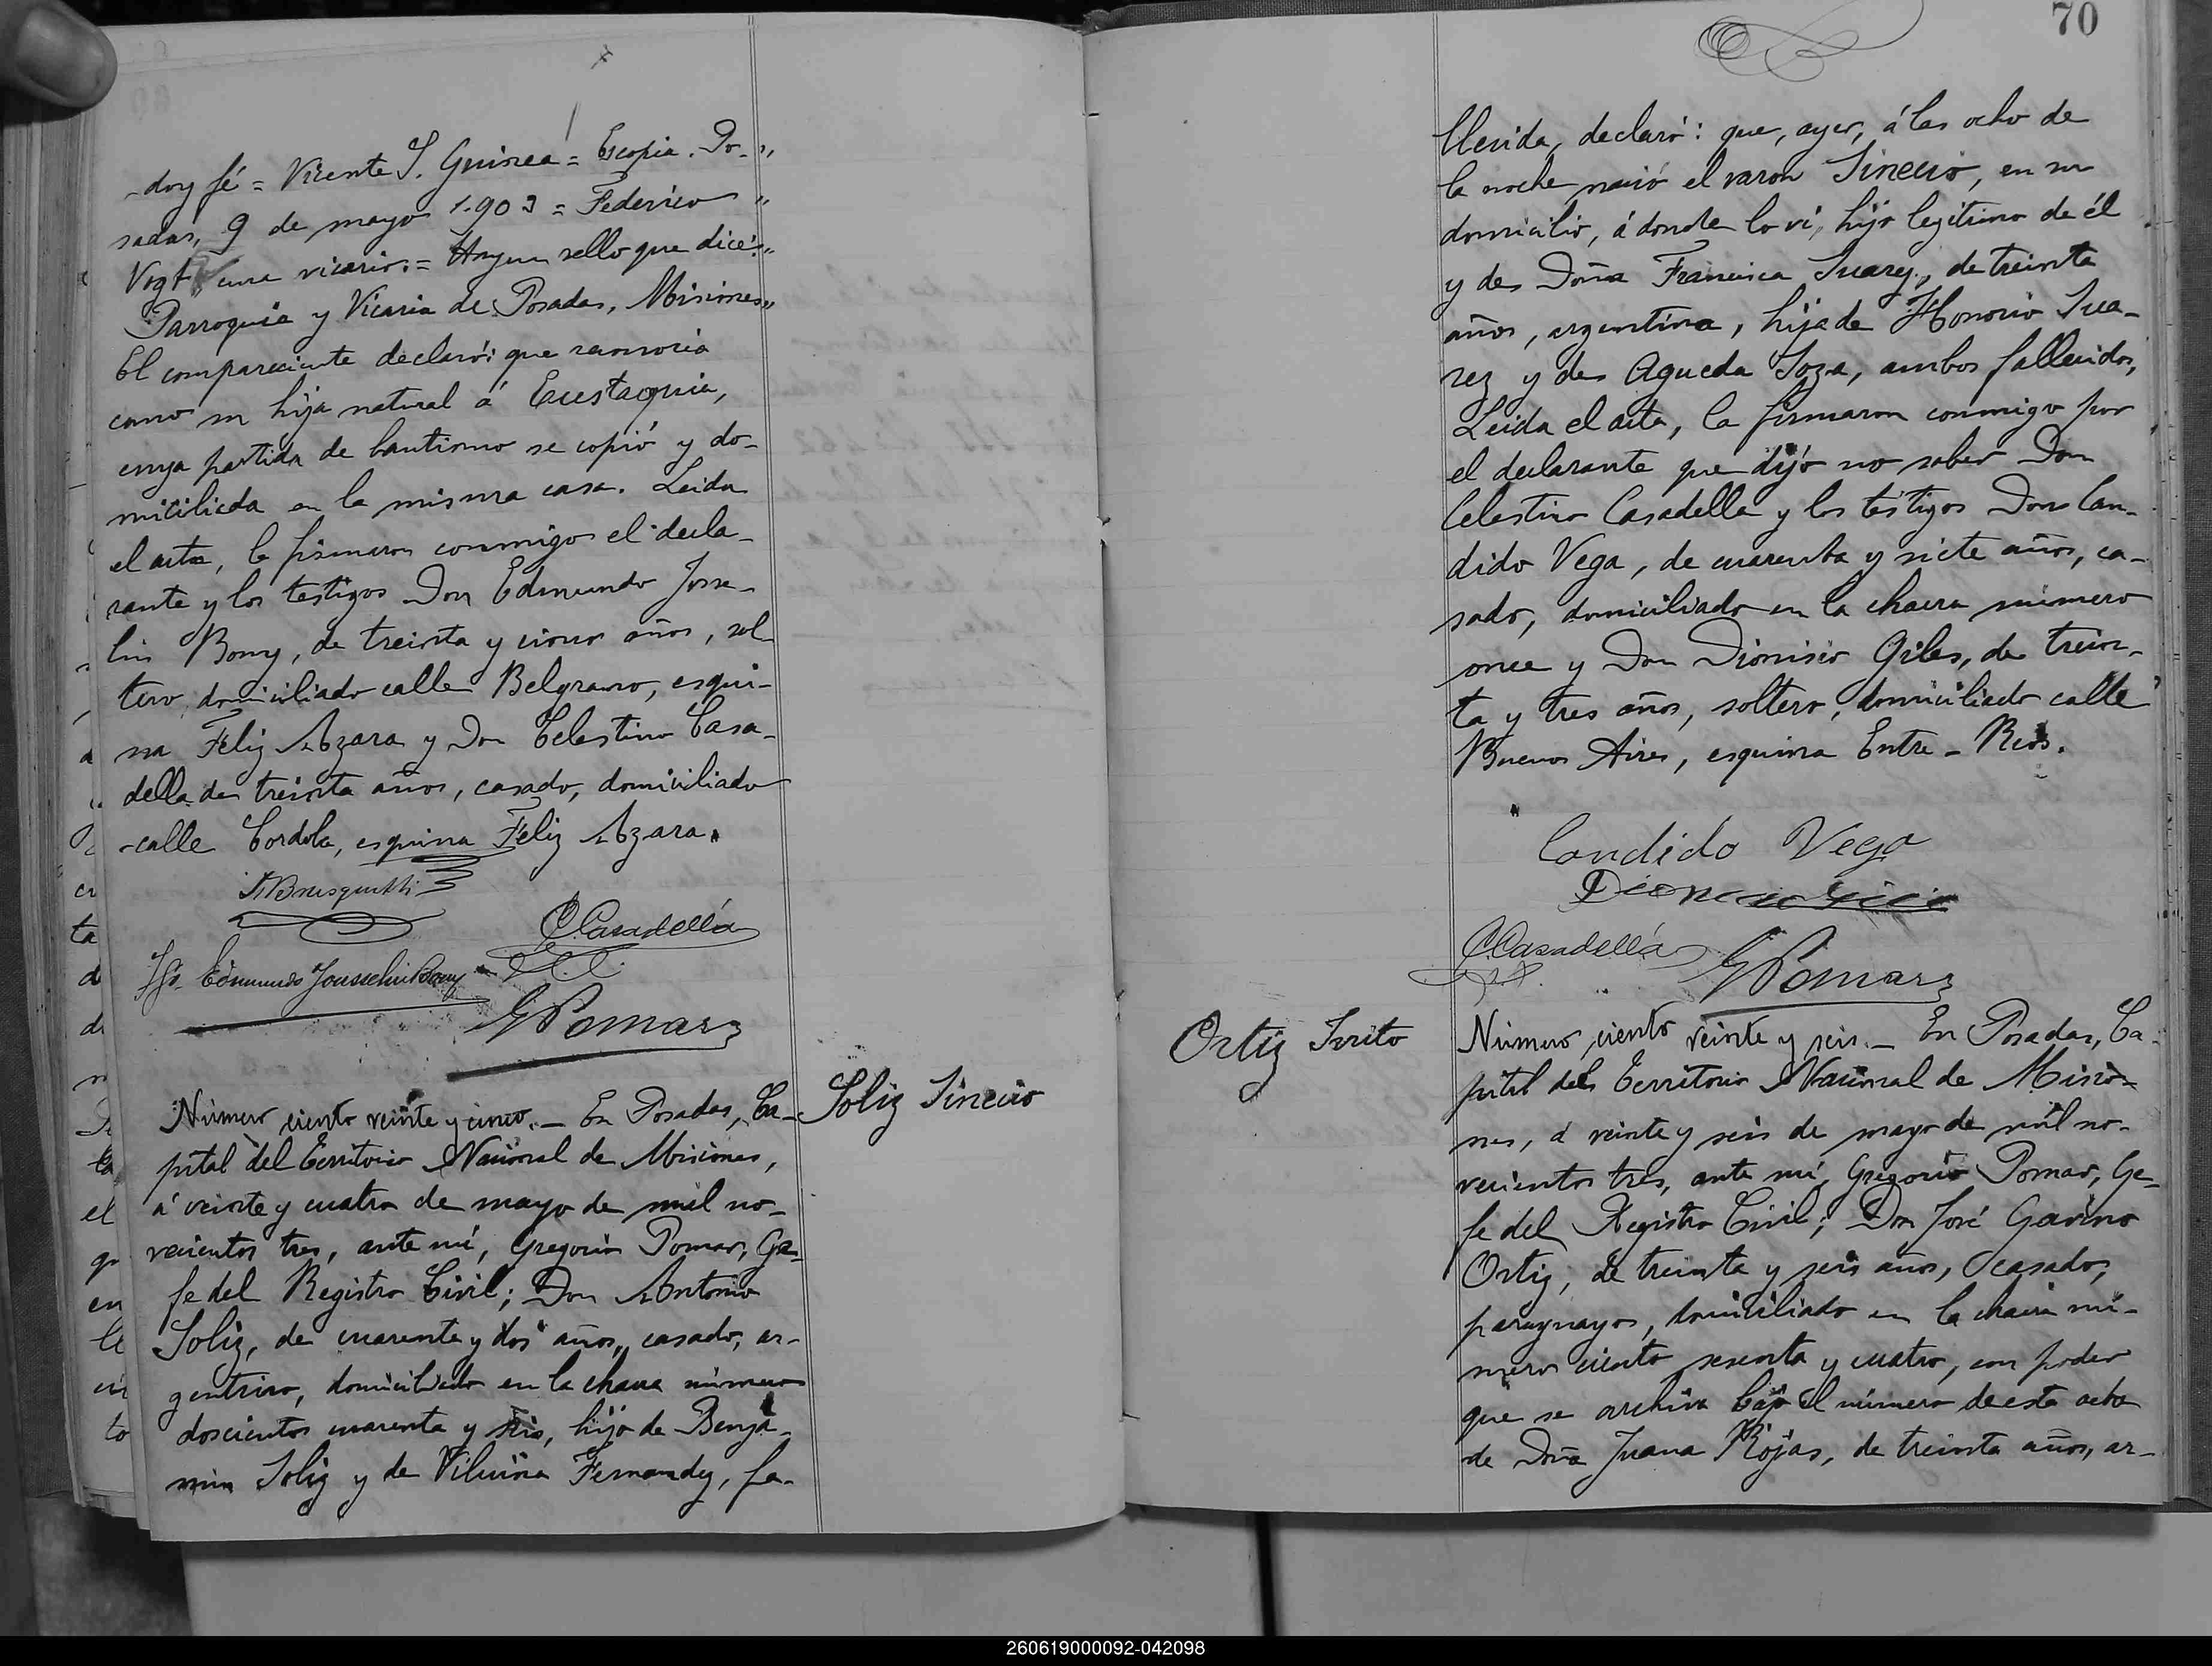 doy fé = Vicente S. Guinea = Es copia. Po-
sadas, 9 de mayo 1.903 = Federico
Vogt, cura vicario. = Hay un sello que dice:
Parroquia y Vicaria de Posadas, Misiones
El compareciente declaró: que reconocia
como su hija natural á Eustaquia,
cuya partida de bautismo se copió y do-
miciliada en la misma casa. Leida
el acta, la firmaron conmigo el decla-
rante y los testigos Don Edmundo Josse-
lin Bony, de treinta y cinco años, sol
tero, domiciliado calle Belgrano, esqui-
na Feliz Azara y Don Celestino Casa-
della de treinta años, casado, domiciliado
calle Cordoba, esquina Feliz Azara.
CCasadella
Edmundo
GPomar
Número ciento veinte y cinco. — En Posadas, Ca-
Soliz Sinecio
pital del Territorio Nacional de Misiones,
á veinte y cuatro de mayo de mil no-
vecientos tres, ante mí, Gregorio Pomar, Ge-
fe del Registro Civil; Don Antonio
Soliz, de cuarenta y dos años, casado, ar-
gentino, domiciliado en la chacra número
doscientos cuarenta y seis, hijo de Benja-
min Soliz y de Fernandez, fa-
70
llecida, declaró: que, ayer, á las ocho de
la noche nació el varon Sinecio, en su
domicilio, á donde lo ví, hijo legitimo de él
y de Doña Francisca Suarez, de treinta
años, argentina, hija de Honorio Sua-
rez y de Agueda Soza, ambos fallecidos,
Leida el acta, la firmaron conmigo por
el declarante que dijo no saber Don
Celestino Casadella y los testigos Don Can-
dido Vega, de cuarenta y siete años, ca-
sado, domiciliado en la chacra número
once y Don Dionisio Giles, de trein-
ta y tres años, soltero, domiciliado calle
Buenos Aires, esquina Entre-Rios.
Candido Vega
CCasadella
GPomar
Ortiz Irrito
Número ciento veinte y seis. — En Posadas, Ca-
pital del Territorio Nacional de Misio-
nes, á veinte y seis de mayo de mil no-
vecientos tres, ante mí, Gregorio Pomar, Ge-
fe del Registro Civil; Don José Gavino
Ortiz, de treinta y seis años, casado,
paraguayo, domiciliado en la chacra nú-
mero ciento sesenta y cuatro, con poder
que se archiva bajo el número de esta acta
de Doña Juana Rojas, de treinta años, ar-
260619000092-042098